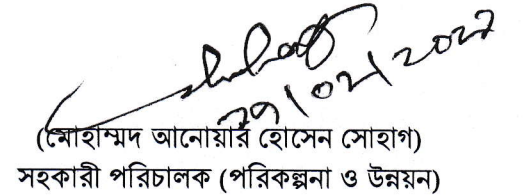 ২৭/০২/২০২২
(মোহাম্মদ আনোয়ার হোসেন সোহাগ)
সহকারী পরিচালক (পরিকল্পনা ও উন্নয়ন)